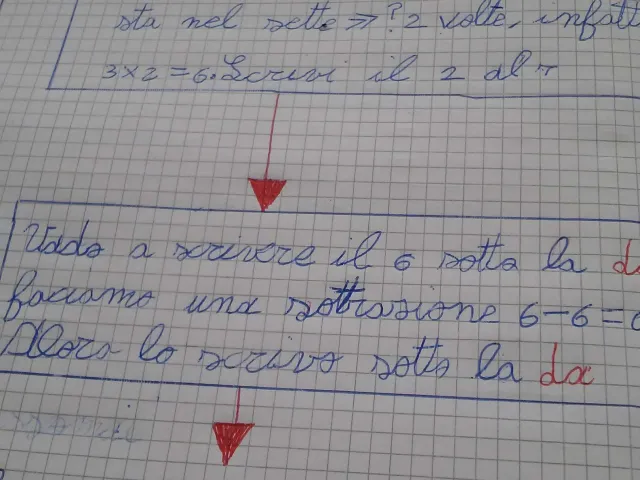 sta nel sette ⇒ ? 2 volte, infatt
3×2=6. Scrivi il 2 al
Vado a scrivere il 6 sotto la d
facciamo una sottrazione 6-6=
Allora lo scrivo sotto la da